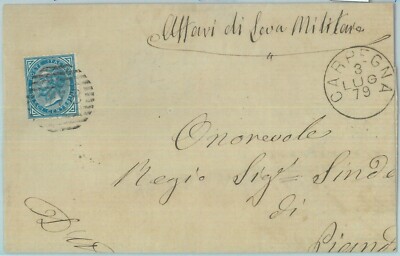 Affari di Leva Militare
CARPEGNA
3
LUG
79
Onorevole
Regio Sigr Sinda
di
Piand